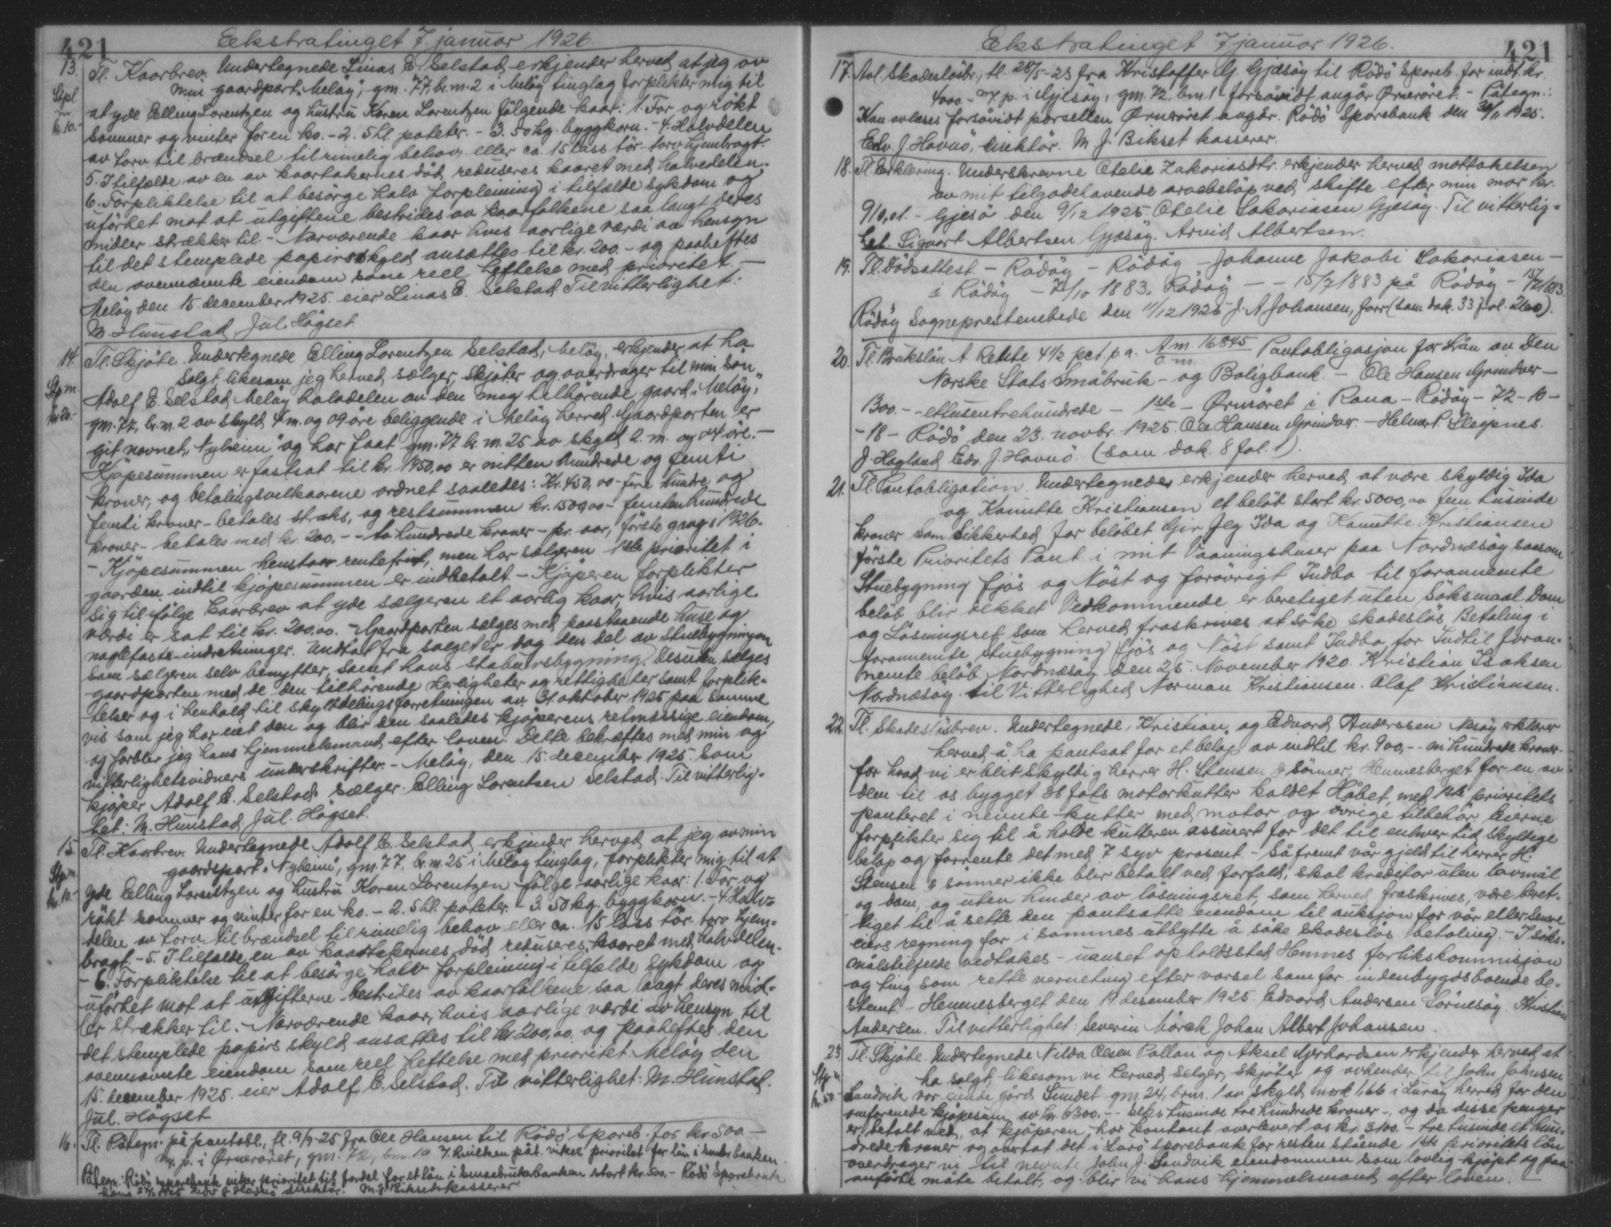 421
Ekstratinget 7 januar 1926.
13. Tl. Kaarbrev. Undertegnede Linas E. Selstad erkjender herved at jeg av
min gaardpart "Meløy", gm. 77, br.m. 2 i Meløy tinglag forplikter mig til
Stpl. m. kr. 10.-
at yde Elling Lorentzen og hustru Karen Lorentzen følgende kaar: 1. For og røkt
sommer og vinter for en ko. - 2. 5 hl. poteter. - 3. 50 kg. byggkorn. - 4. Halvdelen
av torv til brændsel til rimelig behov eller ca 15 lass tör torv hjembragt.
5. I tilfælde av en av kaartakernes död, reduseres kaaret med halvdelen.
6. Forpliktelse til at besörge halv forpleining i tilfælde sykdom og
uförhet mot at utgiftene bestrides av kaarfolkene saa langt deres
midler strækker til. - Nærværende kaar hvis aarlige værdi av hensyn
til det stemplede papirs skyld ansættes til kr. 200.- og paaheftes
den ovennævnte eiendom som reel heftelse med prioritet. -
Meløy den 15. december 1925. eier Linas E. Selstad. Til vitterlighet:
M. Hunstad. Jul. Högset
14. Tl. Skjøte. Undertegnede Elling Lorentzen Selstad, Meløy, erkjender at ha
solgt likesom jeg herved sælger, skjöter og overdrager til min sön
Stp m. kr 20.-
Adolf E. Selstad Meløy halvdelen av den mig tilhörende gaard "Meløy",
gm. 77, br.m. 2 av skyld 4 m. og 09 öre beliggende i Meløy herred. Gaardparten er
git navnet "Nyheim" og har faat gm. 77 br. m. 25 av skyld 2. m. og 04 öre. -
Kjöpesummen er fastsat til kr. 1950,00 er nitten hundrede og femti
kroner, og betalingsvilkaarene ordnet saaledes: Kr. 450,00 - fire hundre og
femti kroner - betales straks, og restsummen kr. 1500,00 - femten hundrede
kroner - betales med kr. 200, - - to hundrede kroner - pr. aar, förste gang i 1926.
- Kjöpesummen henstaar rentefrit, men har sælgeren 1ste prioritet i
gaarden indtil kjöpesummen er indbetalt. - Kjöperen forplikter
sig til ifølge kaarbrev at yde sælgeren et aarlig kaar, hvis aarlige
værdi er sat til kr. 200,00. - Gaardparten sælges med paastaaende huse og
naglefaste indretninger. Undtat fra salget er dog den del av stuebygningen
som sælgeren selv benytter, samt hans stabursbygning. Desuten sælges
gaardparten med de den tilhörende herligheter og rettigheter samt forplik-
telser og i henhold til skylddelingsforretningen av 31 oktober 1925 paa samme
vis som jeg har eiet den og blir den saaledes kjöperens retmæssige eiendom,
og forblir jeg hans hjemmelsmand efter loven. Dette bekræftes med min og
vitterlighetsvidners underskrifter. - Meløy, den 15. december 1925. Som
kjöper Adolf E. Selstad. Sælger: Elling Lorentsen Selstad. Til vitterlig-
het: M. Hunstad. Jul. Högset.
15. Tl. Kaarbrev. Undertegnede Adolf E. Selstad, erkjender herved at jeg av min
gaardpart "Nyheim", gm. 77. br.m. 25 i Meløy tinglag, forplikter mig til at
Stp m. kr. 10.-
yde Elling Lorentzen og hustru Karen Lorentzen følge aarlige kaar: 1. For og
røkt sommer og vinter for en ko. - 2. 5 hl. poteter. - 3. 50 kg. byggkorn. - 4. Halv-
delen av torv til brændsel til rimelig behov eller ca. 15 lass tör torv hjem-
bragt. - 5. I tilfælde en av kaartakernes död, reduseres kaaret med halvdelen.
- 6. Forpliktelse til at besörge halv forpleining i tilfælde sykdom og
uförhet mot at utgifterne bestrides av kaarfolkene saa langt deres mid-
ler strækker til. - Nærværende kaar, hvis aarlige værdi av hensyn til
det stemplede papirs skyld ansættes til kr 200,00. og paaheftes den
ovennævnte eiendom som reel heftelse med prioritet. Meløy den
15. december 1925. eier Adolf E. Selstad. Til vitterlighet: M. Hunstad.
Jul. Högset
16. Tl. Påtegn. på pantobl., tl. 9/7-25 fra Ole Hansen til Rödö Spareb. for kr 500 -
m. p. i Ørnerøret, gm. 72, brm. 10
Påtegn: Rödö sparebank viker prioritet til fordel for et lån i småbrukbanken stort kr. 1300.- Rödö Sparebank
Edv J Havnö direktör. M. J. Bikset kasserer
421
Ekstratinget 7 januar 1926.
17. Avl. Skadeslösbr., tl. 28/5-23 fra Kristoffer G. Gjæsöy til Rödö Spareb. for indt. kr.
4000.- m. p. i Gjæsöy, gm. 72, brm. 1 forsåvidt angår Ørnerøret. - Påtegn.:
Kan avlæses forsåvidt parsellen Ørnerøret angår. Rödö Sparebank den 30/11 1925.
Edv. J. Havnö, direktör. M. J. Bikset kasserer.
18. Tl. Erklæring. Underskrevne Otelie Zakariasdtr. erkjender herved mottakelsen
av mit tilgodehavende arvebelöp ved skifte efter min mor kr.
910,01. - Gjesö den 9/12 1925 Otelie Sakariasen Gjesöy. Til vitterlig-
het. Sigvart Albertsen Gjæsöy. Arvid Albertsen.
19. Tl. Dödsattest - Rödöy - Rödöy - Johanne Jakobi Sakariasen -
i Rödöy - 1883. Rödöy - - 15/7 1883 på Rödöy -
Rödöy Sogneprestembede den 11/12 1925. J. A Johansen, (som dok. 33 fol. 260).
20. Tl. Brukslån A Rente 4½ pct p a. Am. 16845 - Pantobligasjon for Lån av Den
Norske Stats Småbruk- og Boligbank. - Ole Hansen Grindver -
1300.- - ettusentrehundrede - 1ste - Ørneret i Rana - Rödöy - 72 - 10 -
- 18 - Rödö den 23. novbr. 1925 Ole Hansen Grindver. - Helmert Sleipnes.
J. Hagland Edv. J. Havnö. (som dok. 8 fol. 1)
21. Tl. Pantobligation. Undertegnede erkjender herved at være skyldig Ida
og Kanutte Kristiansen et beløb stort kr. 5000,00 fem tusinde
kroner. Som Sikkerhed for beløbet Gir Jeg Ida og Kanutte Kristiansen
første Prioritets Pant i mit Vaaningshuser paa Nordnæsöy saasom
Stuebygning fjös og Nöst og forøvrigt Indbo til forannemte
beløb blir dekket Vedkommende er beretiget uten Söksmaal Dom
og Løsningsret som herved fraskrives at söke skadeslös Betaling i
forannemte Stuebygning fjös og Nöst samt Indbo for Indtil foran-
nemte beløb. Nordnæsöy den 25. November 1920. Kristian Isaksen
Nordnæsöy. Til Vitterlighed Norman Kristiansen. Olaf Kristiansen.
22. Tl. Skadeslösbrev. Undertegnede, Kristian og Edvard Anderssen Nesöy erklærer
herved å ha pantsat for et beløp av indtil kr. 900,- - ni hundrede kroner -
for hvad vi er blit skyldig herrer H. Stensen & Sönner, Hemnesberget for en av
dem til os bygget 38 fots motorkutter kaldet Håbet, med 1ste prioritets
panteret i nevnte kutter med motor og övrige tilbehör. Eierne
forplikter sig til å holde kutteren assurert for det til enhver tid skyldige
beløp og forrente det med 7 syv prosent. - Såfremt vår gjeld til herrer H.
Stensen & sönner ikke blir betalt ved forfald, skal kreditor uten lovmål
og dom, og uten hinder av lösningsret, som herved fraskrives, være beret-
tiget til å sette den pantsatte eiendom til auksjon for vår eller senere
eiers regning for i sammes utbytte å söke skadeslös betaling. - I söks-
målstilfelde vedtakes - uanset opholdssted Hemnes forlikskommisjon
og ting som rette verneting efter varsel som for indenbygdsboende be-
stemt. - Hemnesberget den 19 desember 1925. Edvard Andersen Kristian
Andersen. Til vitterlighet: Severin Mörch Johan Albert Johansen.
23. Tl. Skjöte. Undertegnede Nilda Olsen Pallan og Aksel Gerhardsen erkjender herved at
ha solgt, likesom vi herved selger, skjöter og avhender til John Johnsen
Sandvik vor eiende gård Sundet gm. 24, brm. 1 av skyld mark 1,66 i Luröy herred for den
omforenede kjöpesum av kr. 6300.- - seks tusinde tre hundrede kroner -, og da disse penger
er betalt ved, at kjöperen har kontant overlevert os kr. 3100.- - tre tusinde et hun-
drede kroner og overtat det i Lurö sparebank for resten stående 1ste prioritets lån
overdrager vi til nevnte John J. Sandvik eiendommen som lovlig kjöpt og paa
anförte måte betalt, og blir vi hans hjemmelsmænd efter loven.